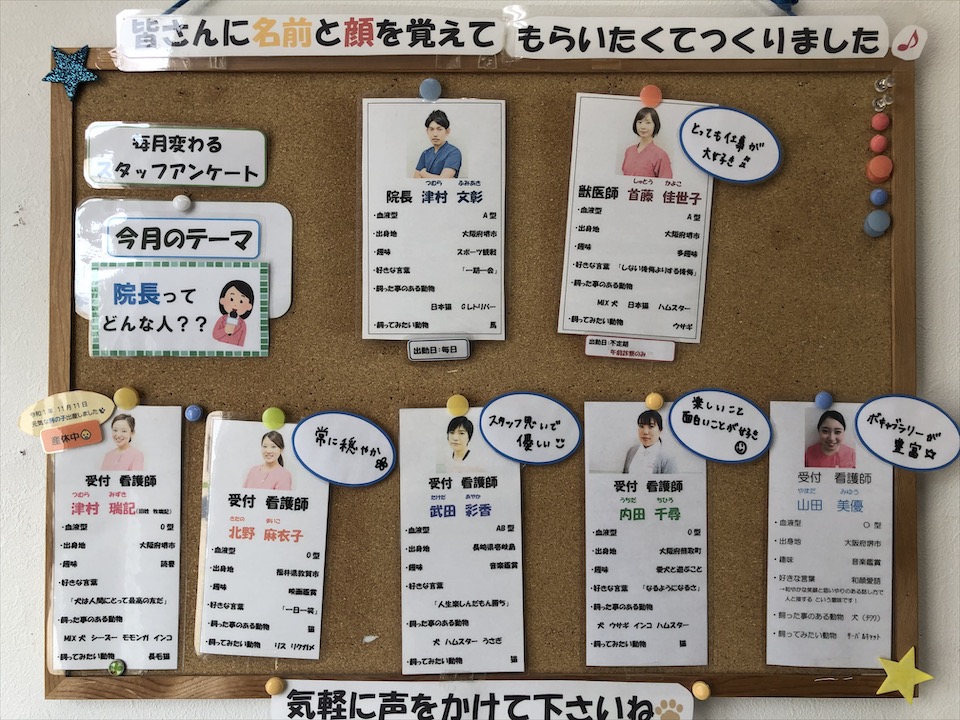 皆さんに名前と顔を覚えて もらいたくてつくりました♪
毎月変わる
スタッフアンケート
今月のテーマ
院長って
どんな人??
つむら ふみあき
院長 津村 文彰
・血液型 A型
・出身地 大阪府堺市
・趣味 スポーツ観戦
・好きな言葉 「一期一会」
・飼った事のある動物
日本猫 Gレトリバー
・飼ってみたい動物 馬
出勤日:毎日
とっても仕事が
大好き♫
しゅとう かよこ
獣医師 首藤 佳世子
・血液型 A型
・出身地 大阪府堺市
・趣味 多趣味
・好きな言葉 「しない後悔よりする後悔」
・飼った事のある動物
MIX犬 日本猫 ハムスター
・飼ってみたい動物 ウサギ
出勤日:不定期
午前診察のみ
令和1年 11月11日
元気な男の子出産しました
産休中
受付 看護師
つむら みずき
津村 瑞記
・血液型 O型
・出身地 大阪府堺市
・趣味 読書
・好きな言葉
「犬は人間にとって最高の友だ」
・飼った事のある動物
MIX犬 シーズー モモンガ インコ
・飼ってみたい動物 長毛猫
常に穏やか
受付 看護師
きたの まいこ
北野 麻衣子
・血液型 O型
・出身地 福井県敦賀市
・趣味 映画鑑賞
・好きな言葉 「一日一笑」
・飼った事のある動物
猫
・飼ってみたい動物 リス リクガメ
スタッフ思いで
優しい
受付 看護師
たけだ あやか
武田 彩香
・血液型 AB型
・出身地 長崎県壱岐島
・趣味 音楽鑑賞
・好きな言葉
「人生楽しんだもん勝ち」
・飼った事のある動物
犬 ハムスター うさぎ
・飼ってみたい動物 猫
楽しいこと
面白いことが好き
受付 看護師
うちだ ちひろ
内田 千尋
・血液型 O型
・出身地 大阪府熊取町
・趣味 愛犬と遊ぶこと
・好きな言葉 「なるようになるさ」
・飼った事のある動物
犬 ウサギ インコ ハムスター
・飼ってみたい動物 猫
ボキャブラリーが
豊富☆
受付 看護師
やまだ みゆう
山田 美優
・血液型 O型
・出身地 大阪府堺市
・趣味 音楽鑑賞
・好きな言葉 和顔愛語
→和やかな笑顔と思いやりのある話し方で
人と接する という意味です!
・飼った事のある動物 犬(チワワ)
・飼ってみたい動物 サーバルキャット
気軽に声をかけて下さいね